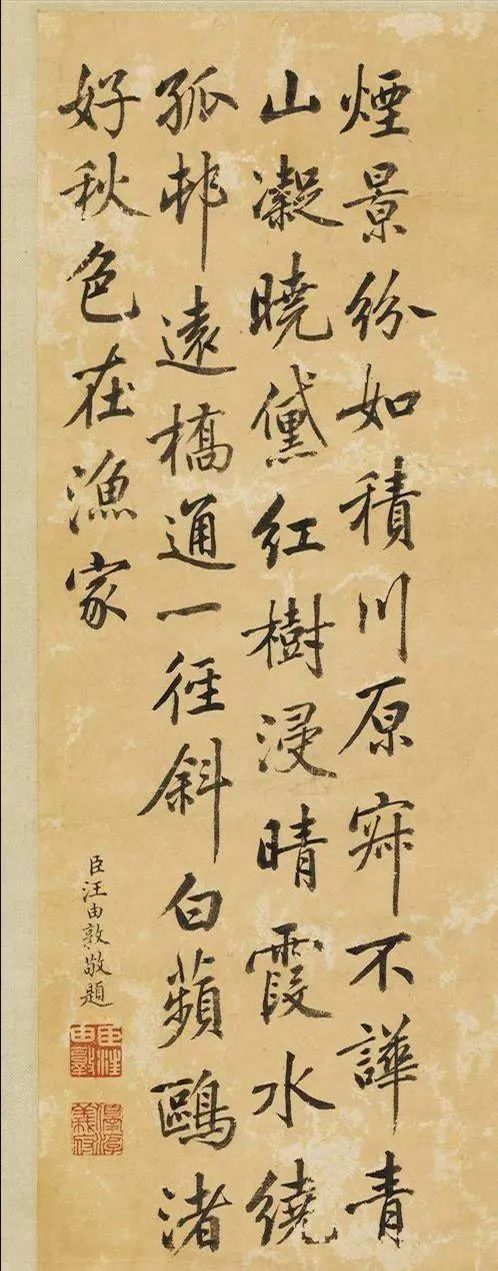 煙景紛如積川原寂不譁青
山凝曉黛紅樹浸晴霞水繞
孤邨遠橋通一徑斜白蘋鷗渚
好秋色在漁家
臣汪由敦敬題
臣汪由敦